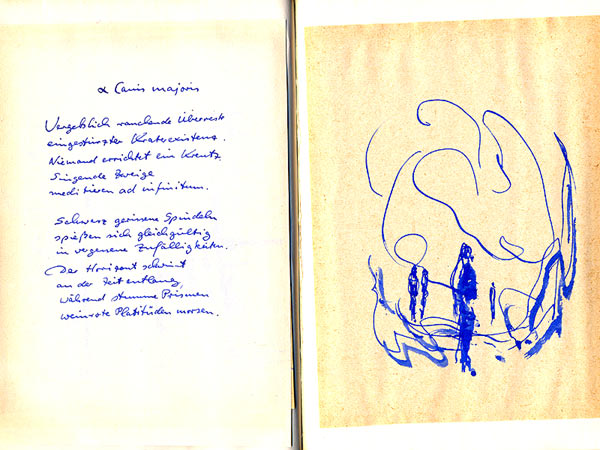 α Canis majoris
Vergeblich rauchende Überreste
eingestürzter Kraterexistenz.
Niemand errichtet ein Kreutz.
Singende Zweige
meditieren ad infinitum.
Schwarz Spindeln
spießen sich gleichgültig
in vergessene Zufälligkeiten.
Der Horizont
an der Zeit entlang,
während stumme Prismen
weinrote Platitüden morsen.